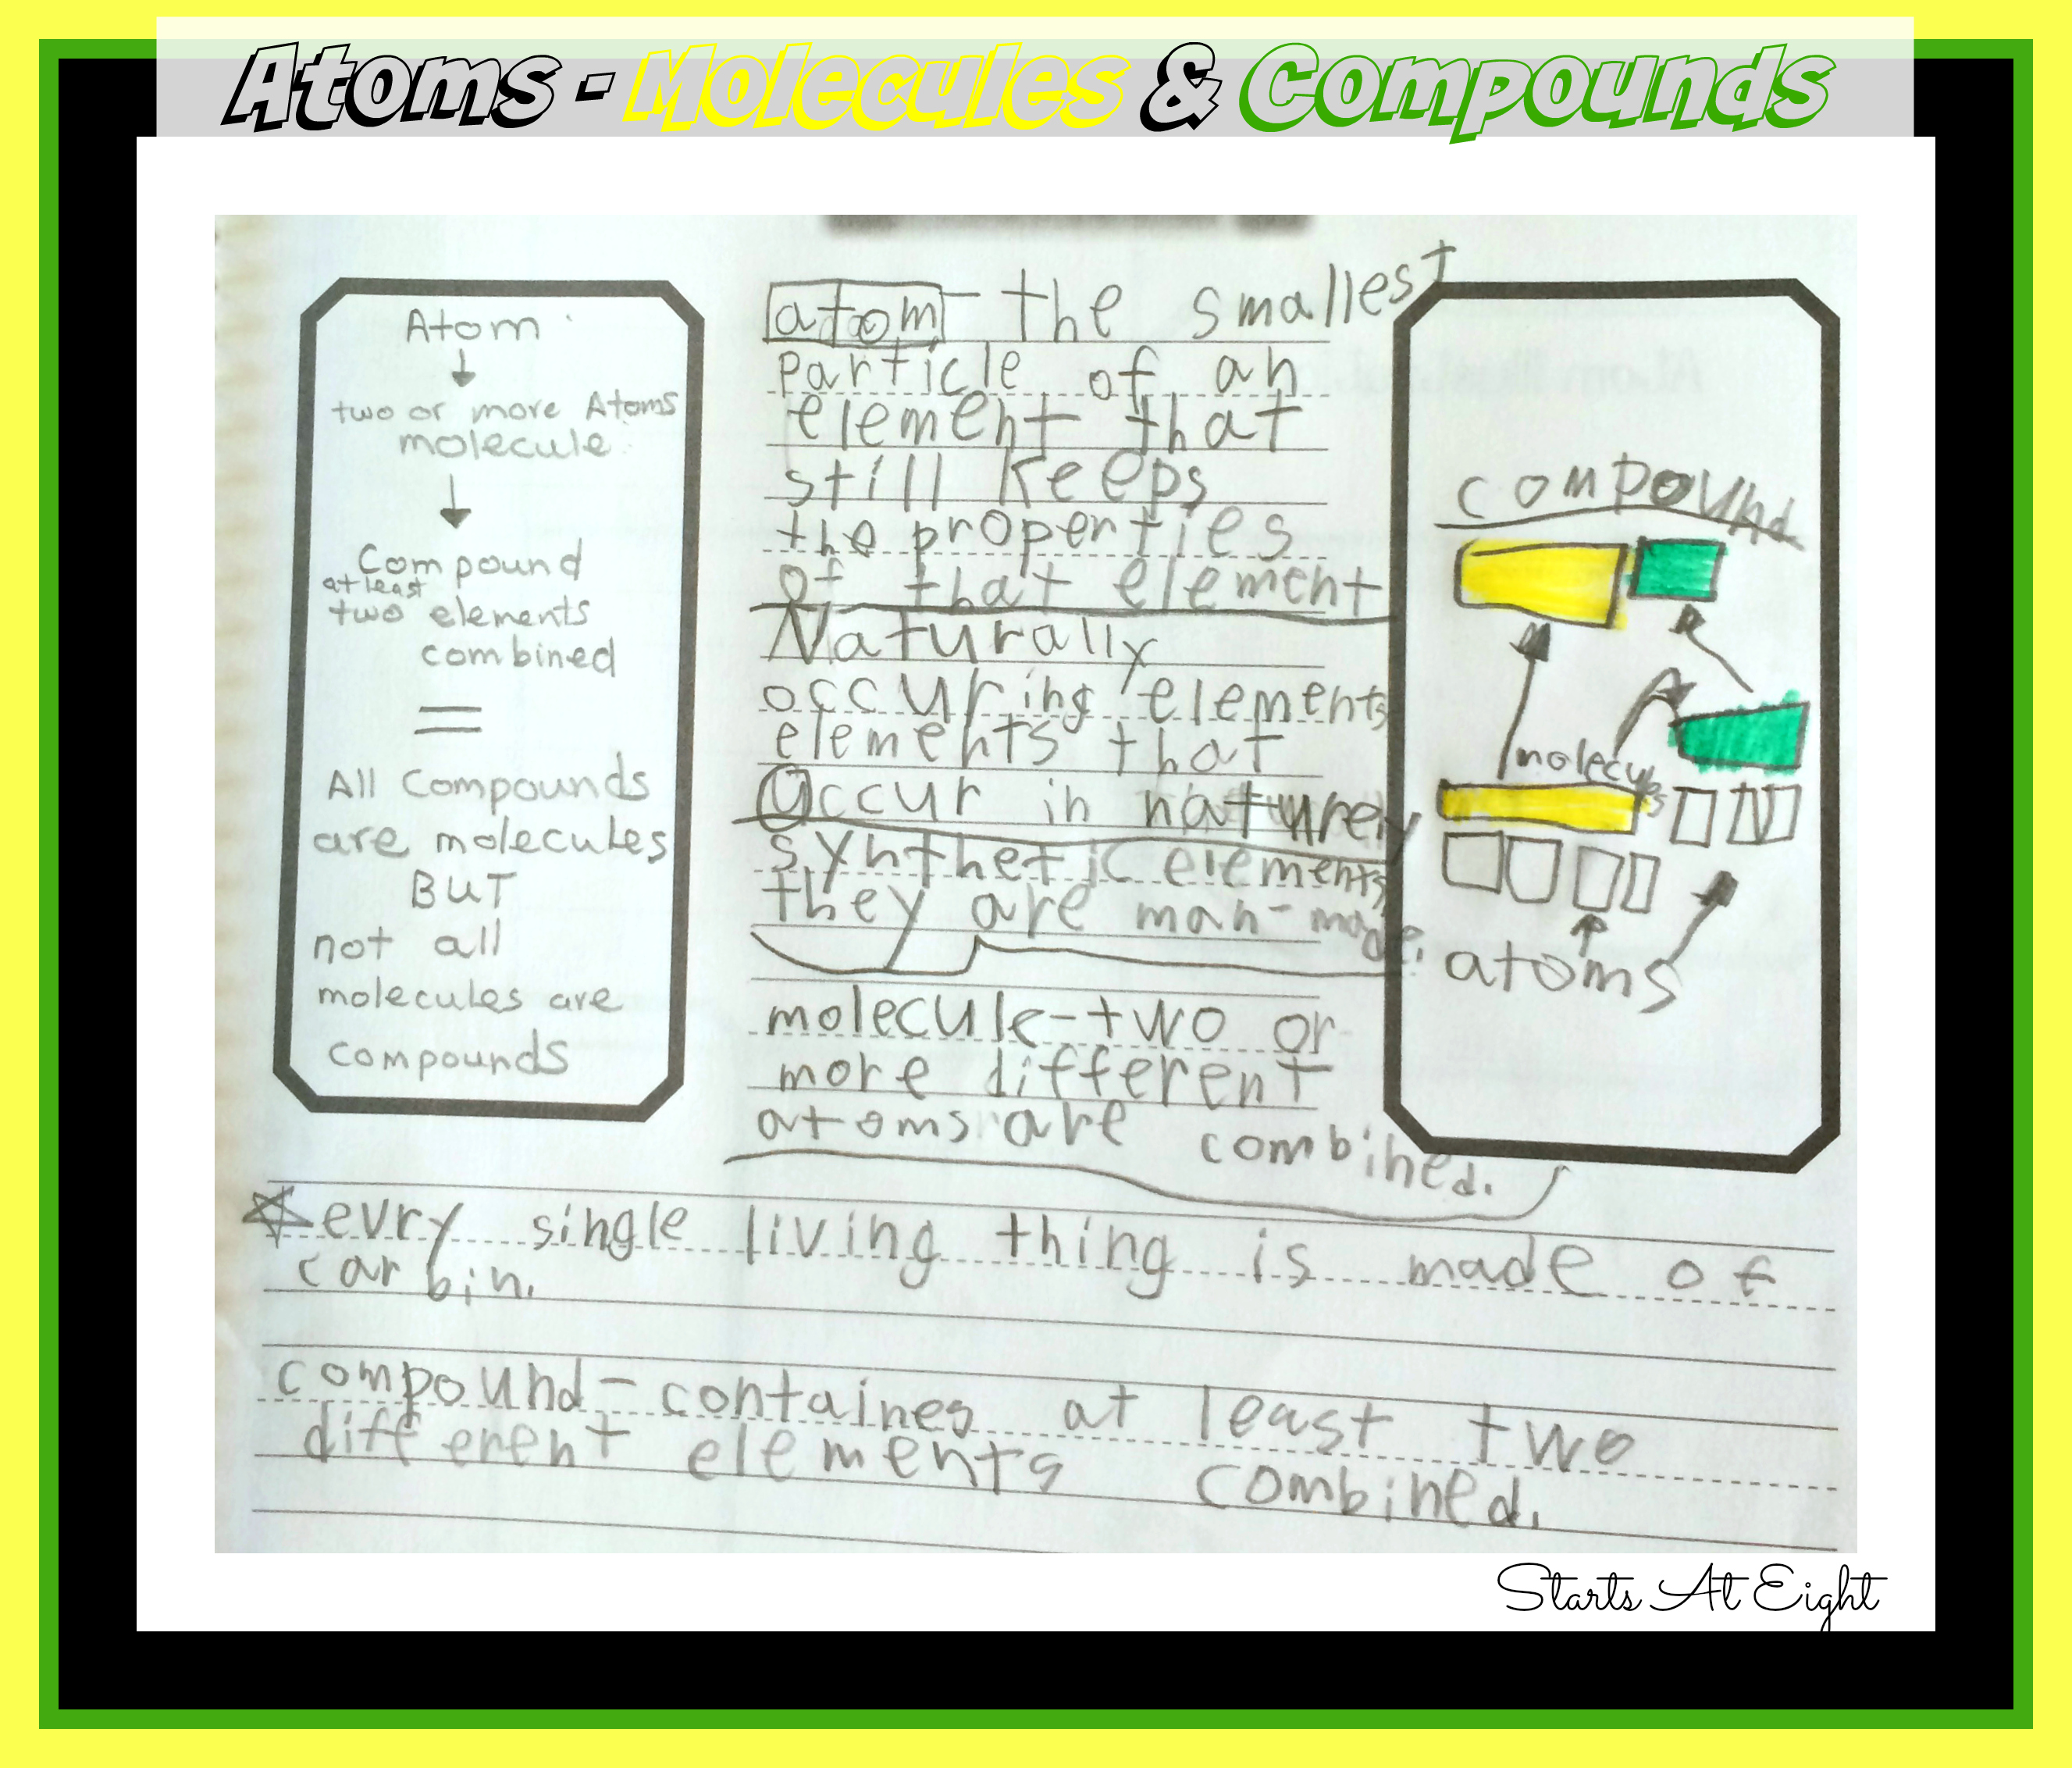 Atoms - Molecules & Compounds
Atom
two or more Atoms
molecule
Compound
at least
two elements
combined
=
All Compounds
are molecules
BUT
not all
molecules are
compounds
atom - the smallest
particle of an
element that
still keeps
the properties
of that element
Naturally
occuring elements
elements that
Occur in nature
synthetic elements
they are man-made.
molecule - two or
more different
atoms are combined.
compound
molecules
atoms
evry single living thing is made of
carbin.
compound - containes at least two
different elements combined.
Starts At Eight